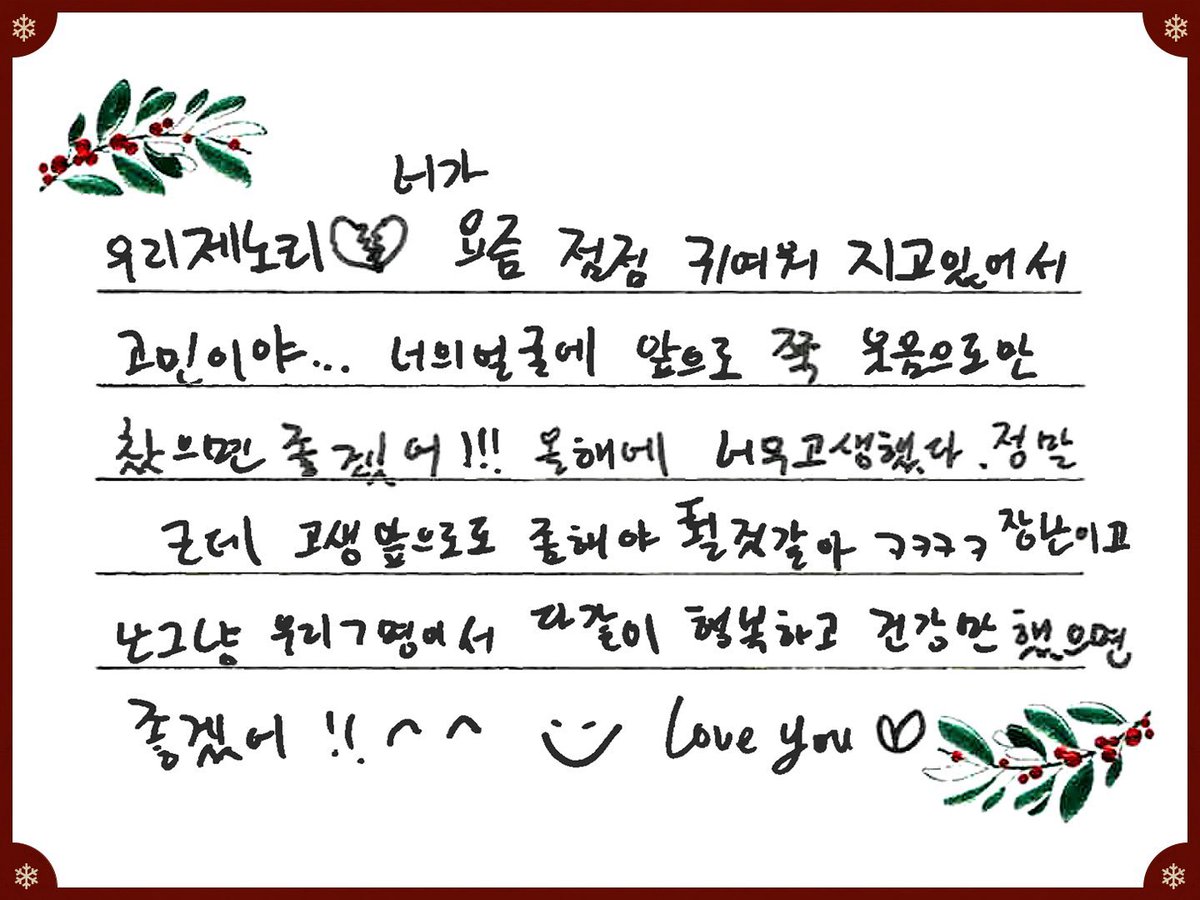 네가
우리제노리 요즘 점점 귀여워 지고있어서
고민이야... 너의얼굴에 앞으로 쭉 웃음으로만
찼으면 좋겠어!!! 올해에 너무고생했다. 정말
근데 고생앞으로도 좀해야 될것같아 ㅋㅋㅋㅋ 장난이고
난그냥 우리7명이서 다같이 행복하고 건강만 했으면
좋겠어 !! ^ ^ Love you